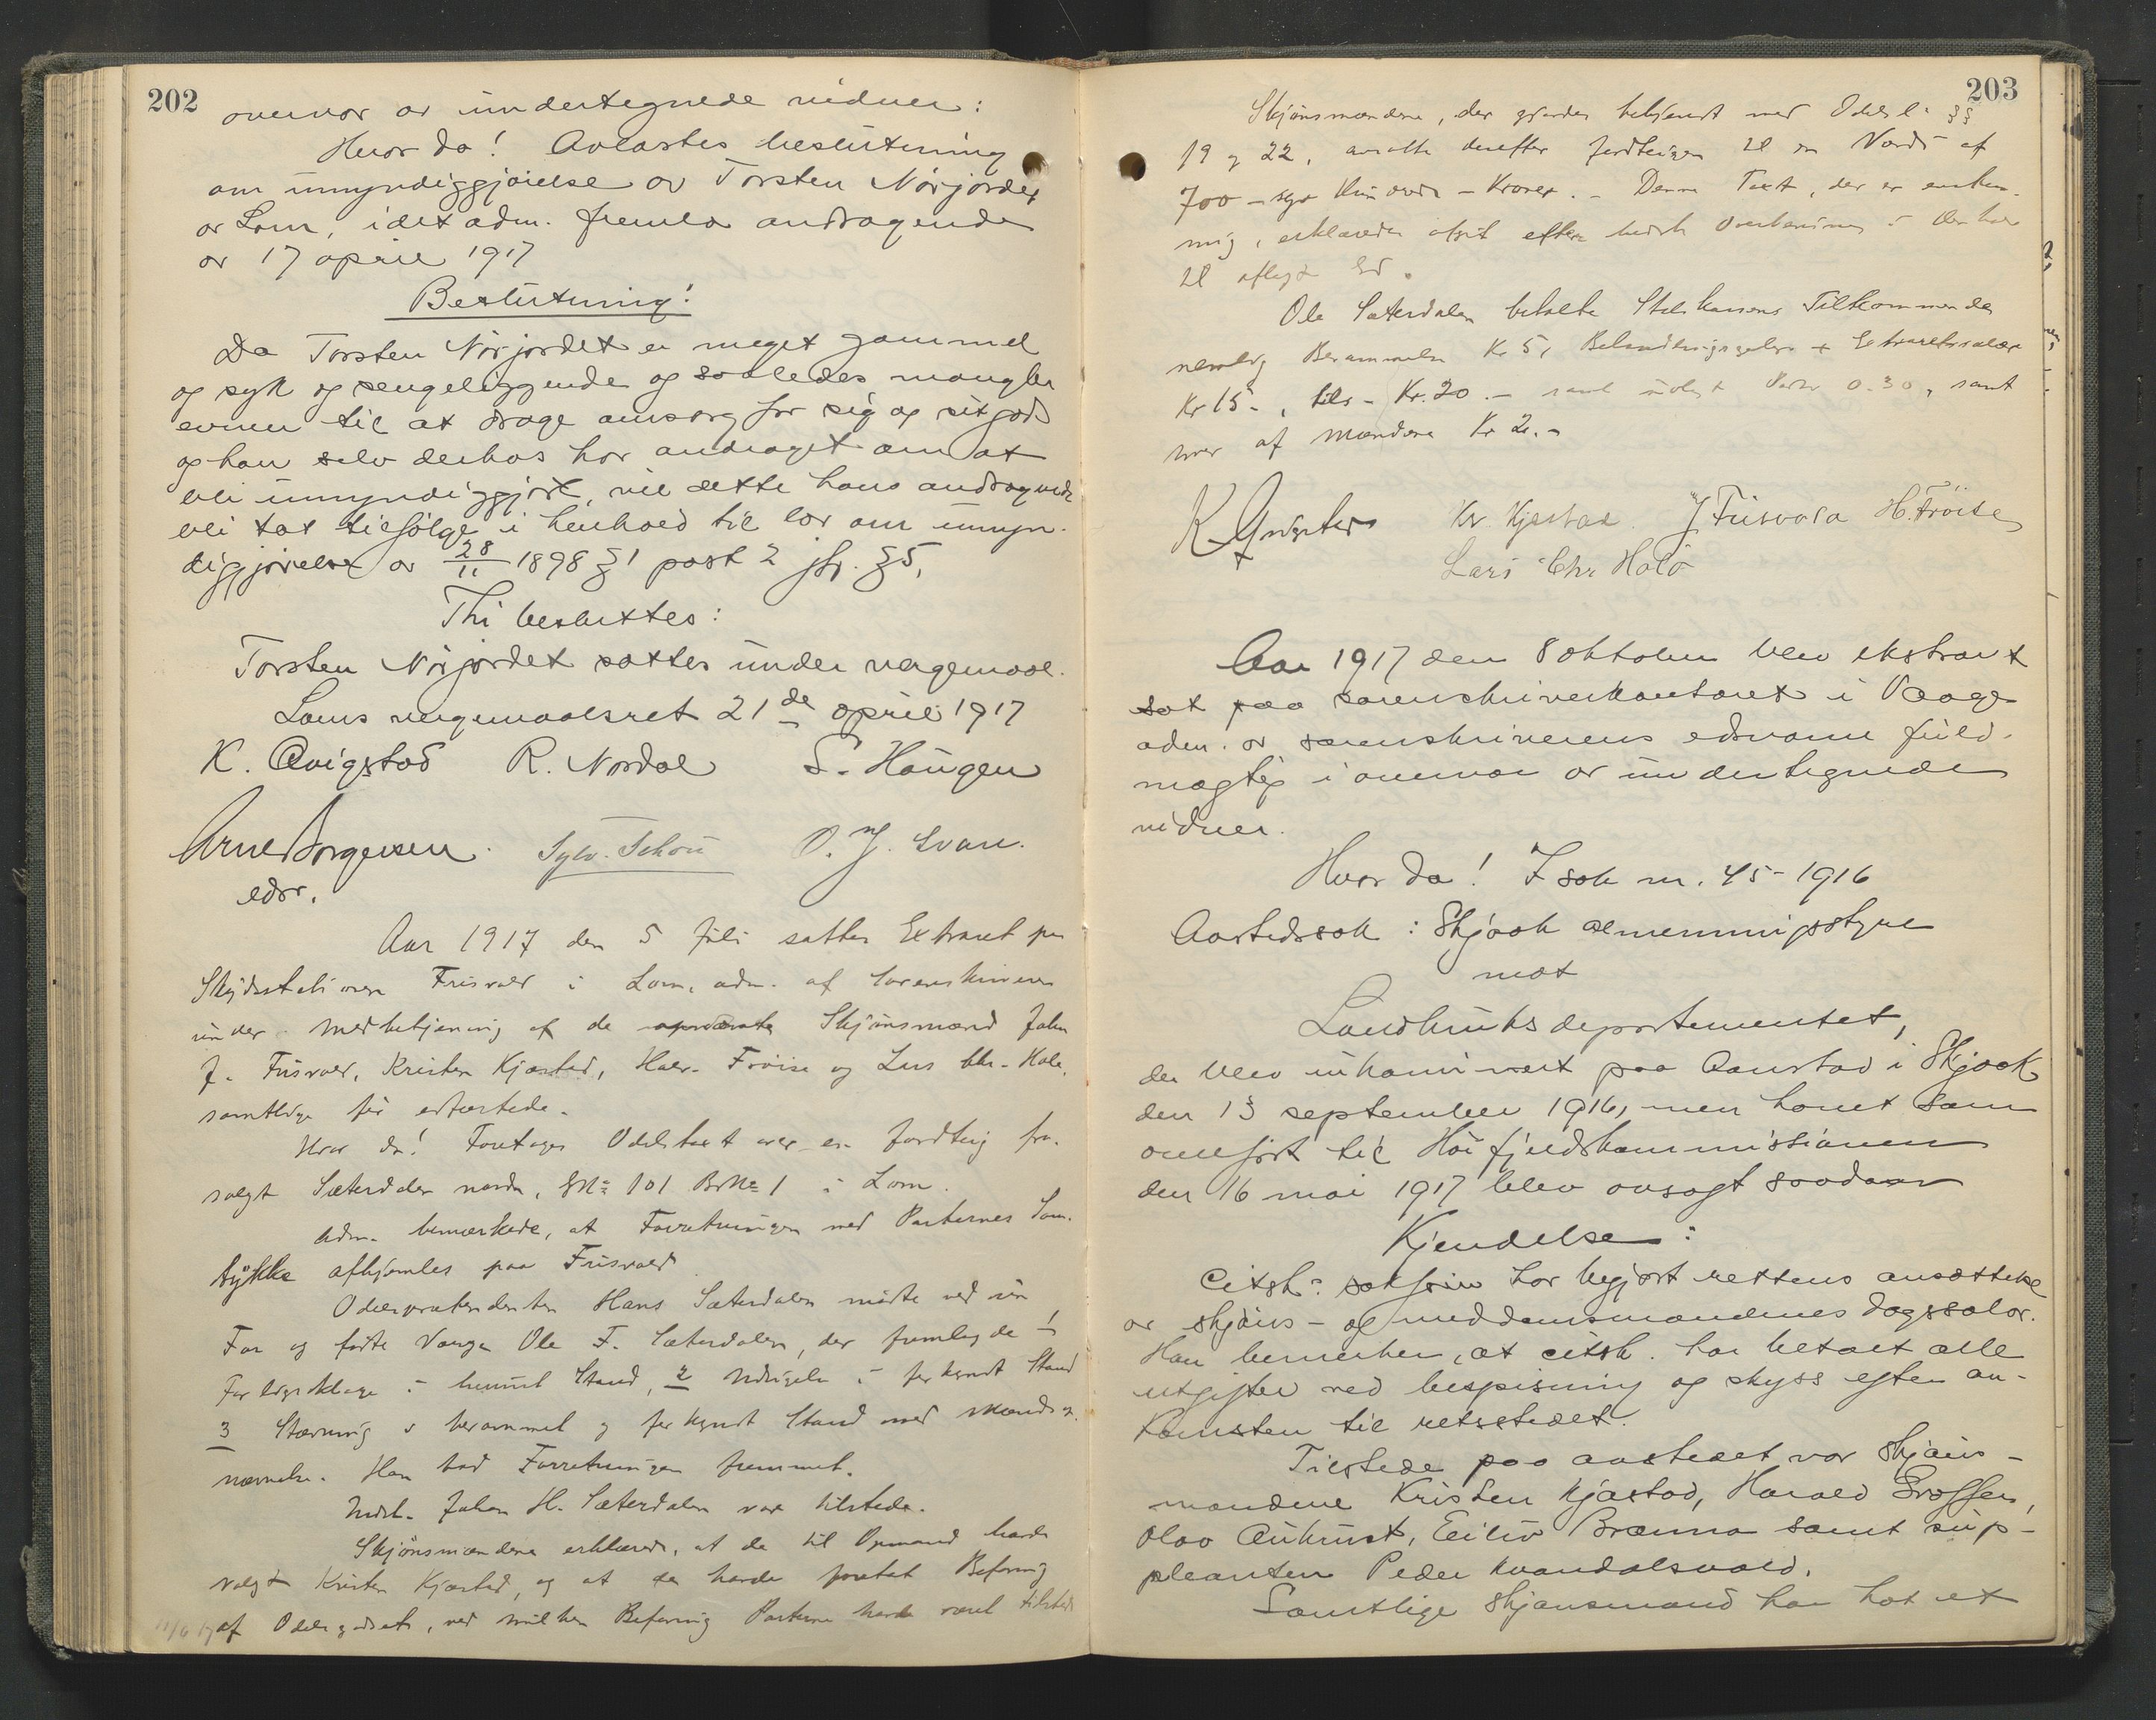 202
overvær av undertegnede vidner:
Hvor da! Avlastes beslutning
om umyndiggjørelse av Torsten Nørjordet
av Lom, idet adm. fremla andragende
av 17 april 1917
Beslutning:
Da Torsten Nørjordet er meget gammel
og syk og sengeliggende og saaledes mangler
evnen til at drage omsorg for sig og sit gods
og han selv derhos har andraget om at
bli umyndiggjort, vil dette hans andragende
bli tat tilfølge i henhold til lov om umyn-
diggjørelse av 28/11 1898 § 1 post 2 jfr. § 5,
Thi besluttes:
Torsten Nørjordet sættes under vergemaal.
Loms vergemaalsret 21de april 1917
K. Qvigstad R. Nordal S. Haugen
Arne Borgersen Sylv. Schou O. J. Svare.
edsv.
Aar 1917 den 5 Juli sattes Extraret paa
Skydsstationen Frisvold i Lom, adm. af Sorenskriveren
under Medbetjening af de opnævnte Skjønsmænd John
J. Frisvold, Kristen Kjæstad, Halv. Frøise og Lars Chr. Holø,
samtlige før edfæstede.
Hvor da! Foretages Odelstaxt over en Jordteig fra-
solgt Sæterdalen nordre, GNo 101 BrNo 1 i Lom.
Adm. bemærkede, at Forretningen med Parternes Sam-
tykke afhjemles paa Frisvold
Odelsprætendenten Hans Sæterdalen mødte ved sin
Far og fødte Verge Ole F. Sæterdalen, der fremlagde 1
Forligsklage i hevnet Stand, 2 Udsigelse i forkyndt Stand
3 Stævning i berammet og forkyndt Stand med Mænds op-
nævnelse. Han bad Forretningen fremmet.
Indst. Johan H. Sæterdalen var tilstede.
Skjønsmændene erklærede, at de til Opmand havde
valgt Kristen Kjæstad, og at de havde foretat Befaring
af Odelsgodset, ved hvilken Befaring Parterne havde været tilstede
203
Skjønsmændene, der gjordes bekjendt med Odelsl. §§
19 og 22, ansatte derefter Jordteigen til en Værdi af
700 - syv Hundrede - Kroner. - Denne Taxt, der er enstem-
mig, erklæredes afgit efter bedste Overbevisning i Henhold
til aflagt Ed.
Ole Sæterdalen betalte Skrivens Tilkommende
nemlig Berammelse Kr 5, Behandlingsgebyr + Extraretssalær
Kr 15 -, tils. - Kr. 20. - samt 0.30, samt
hver af Mændene Kr 2. -
K Kr. Kjæstad. J Frisvold H. Frøise
Lars Chr Holø
Aar 1917 den 8 oktober blev ekstraret
sat paa sorenskriverkontoret i Vaage
adm. av sorenskriverens edsvorne fuld-
mægtig i overvær av undertegnede
vidner.
Hvor da! I sak nr. 45 - 1916
Aastedssak: Skjaak almenningsstyre
mot
Landbruksdepartementet,
der blev inkaminert paa Aanstad i Skjaak
den 13 september 1916, men hævet som
overført til Høifjeldskommissionen
den 16 mai 1917 blev avsagt saadan
Kjendelse:
Citsk: sakfører har begjært rettens ansættelse
av skjøns- og meddomsmændenes dagsalær.
Han bemerker, at citsk. har betalt alle
utgifter ved bespisning og skyss efter an-
komsten til retsstedet.
Tilstede paa aastedet var skjøns-
mændene Kristen Kjæstad, Harald Gråffer,
Olav Aukrust, Eiliv Brænna samt sup-
pleanten Peder Kvandalsvold.
Samtlige skjønsmænd har hat et